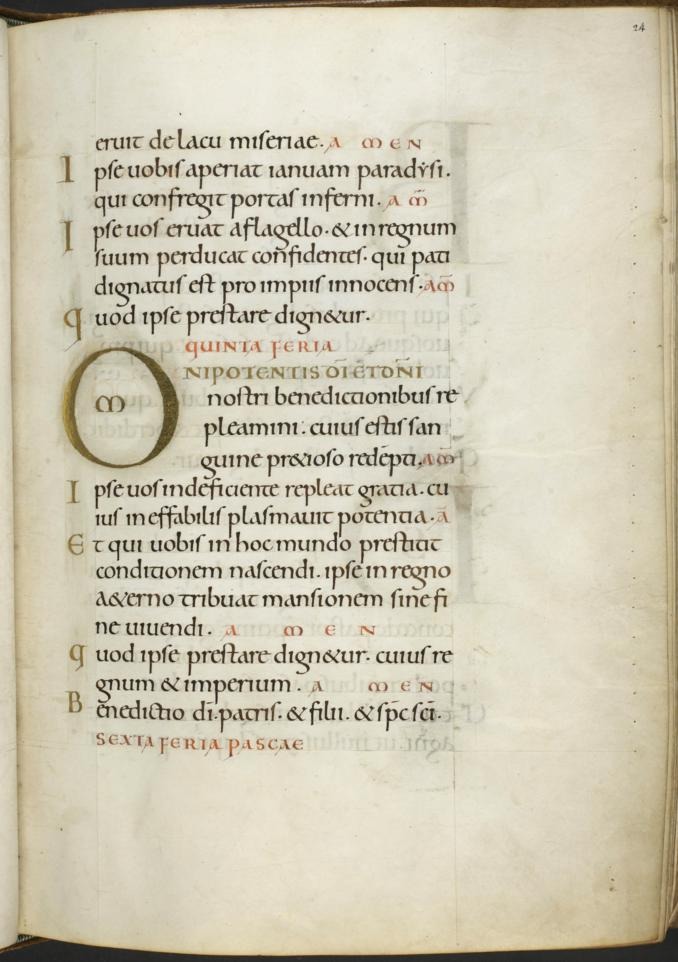 24
eruit de lacu miseriae. AMEN
Ipse uobis aperiat ianuam paradẏsi.
qui confregit portas inferni. Am̄
Ipse uos eruat a flagello. & in regnum
suum perducat confidentes. qui pati
dignatus est pro impiis innocens. Am̄
quod ipse prestare dign&ur.
QUINTA FERIA
OMNIPOTENTIS DĪ ET DN̄I
nostri benedictionibus re
pleamini. cuius estis san
guine pr&ioso redēpti. Am̄
Ipse uos indeficiente repleat gratia. cu
ius ineffabilis plasmauit potentia. Ā
Et qui uobis in hoc mundo prestitit
conditionem nascendi. ipse in regno
a&erno tribuat mansionem sine fi
ne uiuendi. AMEN
quod ipse prestare dign&ur. cuius re
gnum & imperium. AMEN
Benedictio dī. patris. & filii. & sp̄c sc̄i.
SEXTA FERIA PASCAE